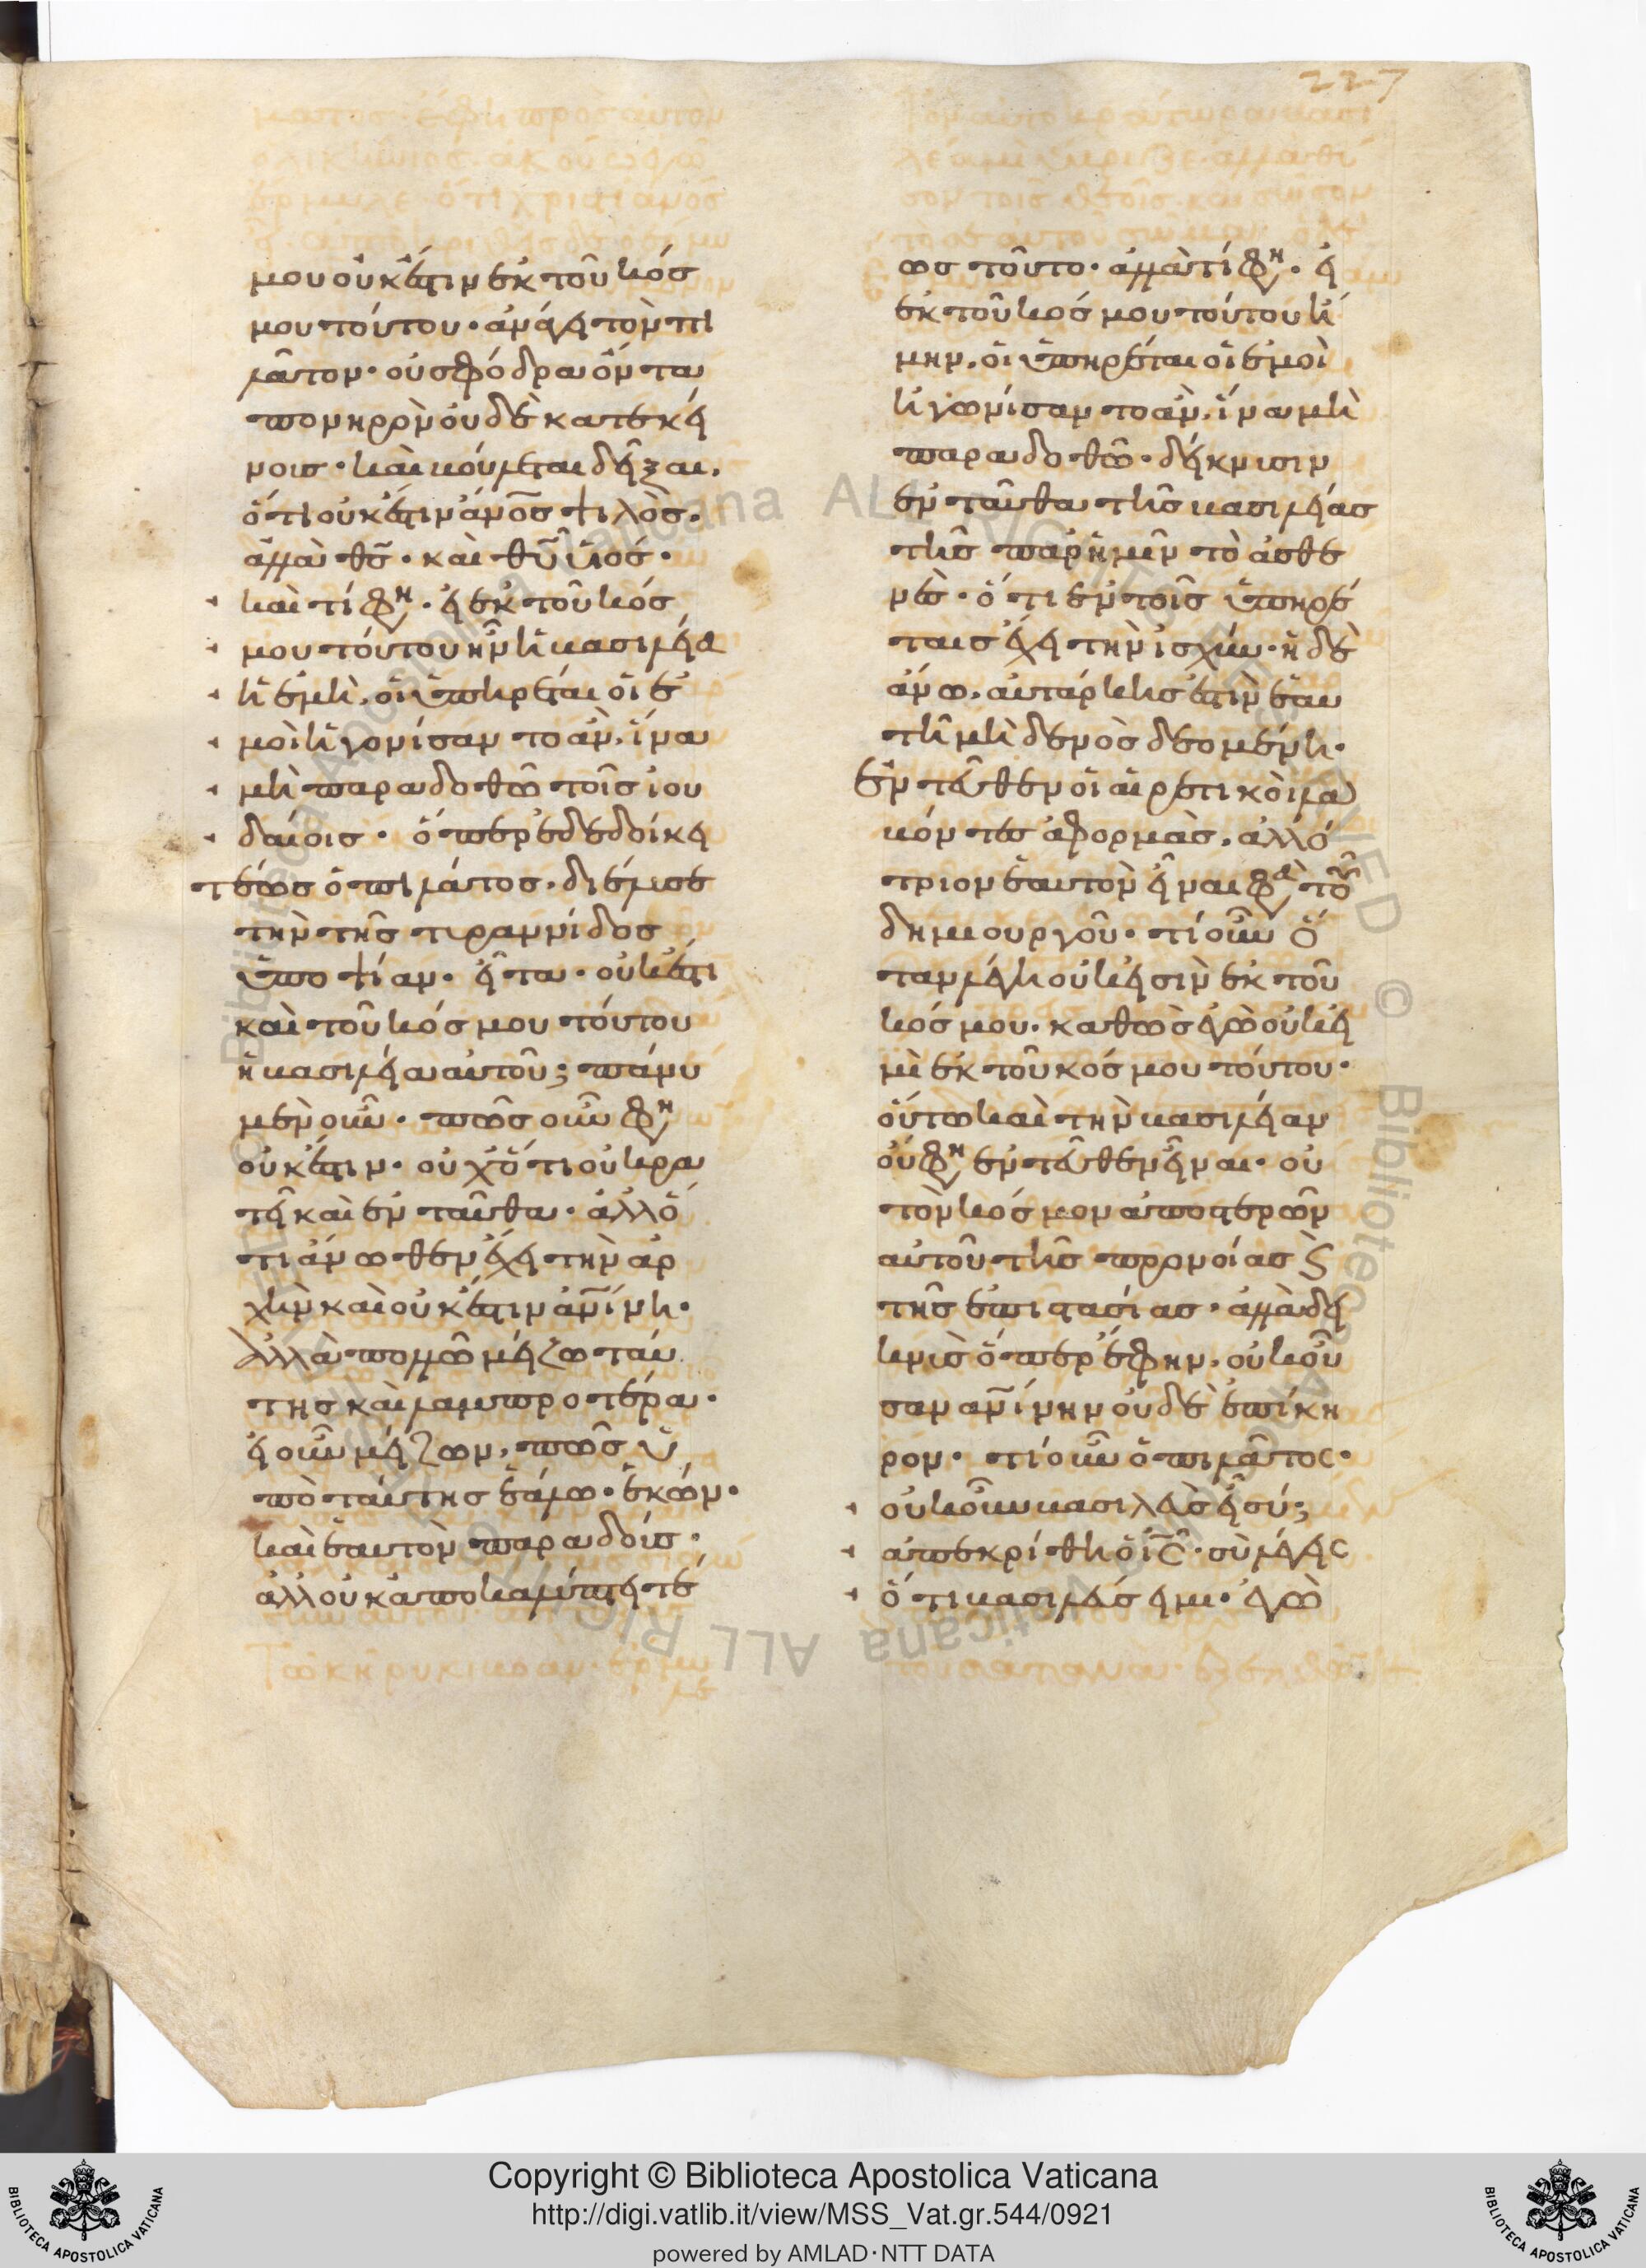 227
μου οὐκ ἔστιν ἐκ τοῦ κόσ
μου τούτου· ἀνάγει τὸν πι
λᾶτον· οὐ σφόδρα ὄντα
πονηρὸν οὐδὲ κατ' ἐκεί
νοις· καὶ βούλεται δεῖξαι,
ὅτι οὐκ ἔστιν ἄνο̅ς ψιλὸς·
ἀλλὰ θς̅· καὶ θυ̅ υἱός·
καὶ τί φη· εἰ ἐκ τοῦ κόσ
μου τούτου ἦν ἡ βασιλεία
ἡ ἐμὴ, οἱ ὑπηρέται οἱ ἐ
μοὶ ἠγονίσαν το ἂν, ἵνα
μὴ παραδοθῶ τοῖς ἰου
δαίοις· ὅπερ ἐδεδοίκει
τέως ὁ πιλάτος, διέλυσε
τὴν τῆς τυραννίδος
ὑποψίαν· εἶτα· οὐκ ἔστι
καὶ τοῦ κόσμου τούτου
ἡ βασιλεία αὐτοῦ; πάνυ
μὲν οὖν· πῶς οὖν φη
οὐκ ἔστιν· οὐχ ὅτι οὐ κρα
τεῖ καὶ ἐν ταῦθα· ἀλλ' ὅ
τι ἄνωθεν ἔχει τὴν ἀρ
χὴν καὶ οὐκ ἔστιν ἀνι̅νη·
ἀλλὰ πολλῶ μείζω ταύ
της καὶ λαμπροτέρα·
εἰ οὖν μείζων, πῶς ὑ
πὸ ταύτης ἑάλω· ἑκών·
καὶ ἑαυτὸν παραδούς·
ἀλλ' οὐκ ἀποκαλύπτει τέ
ως τοῦτο· ἀλλὰ τί φη· εἰ
ἐκ τοῦ κόσμου τούτου ἤ
μην, οἱ ὑπηρέται οἱ ἐμοὶ
ἠγωνίσαν το ἂν, ἵνα μὴ
παραδοθῶ· δείκνυσιν
ἐν ταῦθα τῆς βασιλείας
τῆς παρ' ἡμῖν τὸ ἀσθε
νὲς· ὅτι ἐν τοῖς ὑπηρέ
ταις ἔχει τὴν ἰσχύν· ἡ δὲ
ἄνω, αὐτάρκης ἐστὶν ἑαυ
τῆ μὴ δενὸς δεομένη·
ἐν τεῦθεν οἱ αἱρετικοὶ λα
βόντες ἀφορμὰς, ἀλλό
τριον ἑαυτὸν εἶναι φα τοῦ
δημιουργοῦ· τί οὖν ὅ
ταν λέγη οὐκ εἰσὶν ἐκ τοῦ
κόσμου· καθὼς ἐγὼ οὐκ εἰ
μὶ ἐκ τοῦ κόσμου τούτου·
οὕτω καὶ τὴν βασιλείαν
οὔ φη ἐν τεῦθεν εἶναι· οὐ
τὸν κόσμον ἀποστερῶν
αὐτοῦ τῆς προνοίας ϛ
τῆς ἐπιστασίας· ἀλλὰ δεί
κνυσ ὅπερ ἔφην, οὐκ οὖ
σαν ἀνι̅νην οὐδὲ ἐπίκη
ρον· τί οὖν ὁ πιλᾶτος·
οὐκοῦν βασιλεὺς εἶ σύ;
ἀπεκρίθη ὁ ις̅· σὺ λέγεις
ὅτι βασιλεύς εἰμι· ἐγὼ
Copyright © Biblioteca Apostolica Vaticana
http://digi.vatlib.it/view/MSS_Vat.gr.544/0921
powered by AMLAD·NTT DATA
BIBLIOTECA APOSTOLICA VATICANA
BIBLIOTECA APOSTOLICA VATICANA